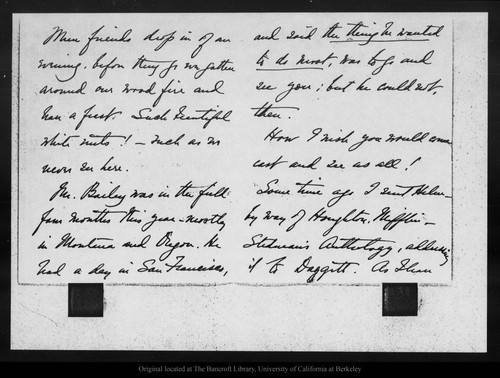 When friends drop in of an
evening, before they go we gather
around our wood fire and
have a feast. Such beautiful
white nuts! – such as we
never see here.
Mr. Bailey was in the field
four months this year – mostly
in Montana and Oregon. He
had a day in San Francisco,
and said the thing he wanted
to do most, was to go and
see you; but he could not,
then.
How I wish you would come
east and see us all!
Some time ago I sent Helen –
by way of Houghton, Mifflin –
Stedman's Anthology, addressing
it to Daggett. As I have
Original located at The Bancroft Library, University of California at Berkeley